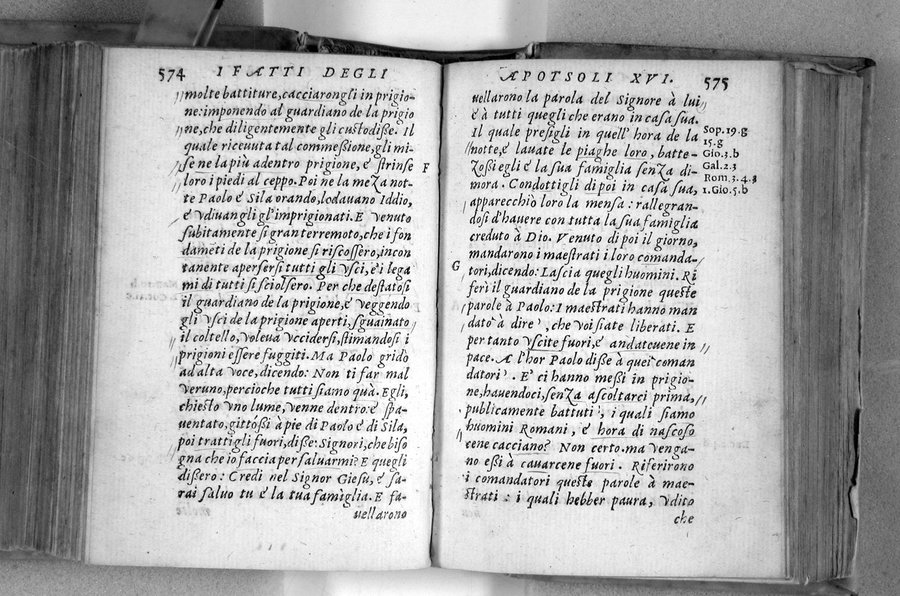 574 I FATTI DEGLI
molte battiture, cacciarongli in prigio-
ne: imponendo al guardiano de la prigio
ne, che diligentemente gli custodiße. Il
quale riceuuta tal commeßione, gli mi-
se ne la più adentro prigione, e strinse
loro i piedi al ceppo. Poi ne la meza not-
te Paolo è Sila orando, lodauano Iddio,
e vdiuangli gl'imprigionati. E venuto
subitamente sì gran terremoto, che i fon
dameti de la prigione si riscossero, incon
tanente apersersi tutti gli vsci, e i lega
mi di tutti si sciolsero. Per che destatosi
il guardiano de la prigione, e veggendo
gli vsci de la prigione aperti, sguainato
il coltello, voleua vccidersi, stimandosi i
prigioni essere fuggiti. Ma Paolo gridò
ad alta voce, dicendo: Non ti far mal
veruno, percioche tutti siamo quà. Egli,
chiesto vno lume, venne dentro: è spa-
uentato, gittoßi à pie di Paolo è di Sila,
poi trattigli fuori, diße: Signori, che biso
gna che io faccia per saluarmi? E quegli
dißero: Credi nel Signor Giesu, è sa-
rai saluo tu è la tua famiglia. E fa-
uellarono
F
APOTSOLI XVI. 575
uellarono la parola del Signore à lui
è à tutti quegli che erano in casa sua.
Il quale presigli in quell'hora de la
notte, è lauate le piaghe loro, batte-
zoßi egli è la sua famiglia senza di-
mora. Condottigli dipoi in casa sua,
apparecchiò loro la mensa: rallegran-
dosi d'hauere con tutta la sua famiglia
creduto à Dio. Venuto di poi il giorno,
mandarono i maestrati i loro comanda-
tori, dicendo: Lascia quegli huomini. Ri
ferì il guardiano de la prigione queste
parole à Paolo: I maestrati hanno man
dato à dire, che voi siate liberati. E
per tanto vscite fuori, è andateuene in
pace. A l'hor Paolo diße à quei coman
datori. E' ci hanno meßi in prigio-
ne, hauendoci, senza ascoltarci prima,
publicamente battuti, i quali siamo
huomini Romani, è hora di nascoso
cene cacciano? Non certo. ma venga-
no eßi à cauarcene fuori. Riferirono
i comandatori queste parole à mae-
strati: i quali hebber paura, vdito
che
G
Sop. 19. g
15. g
Gio. 3. b
Gal. 2. 3
Rom. 3. 4. 3
1. Gio. 5. b